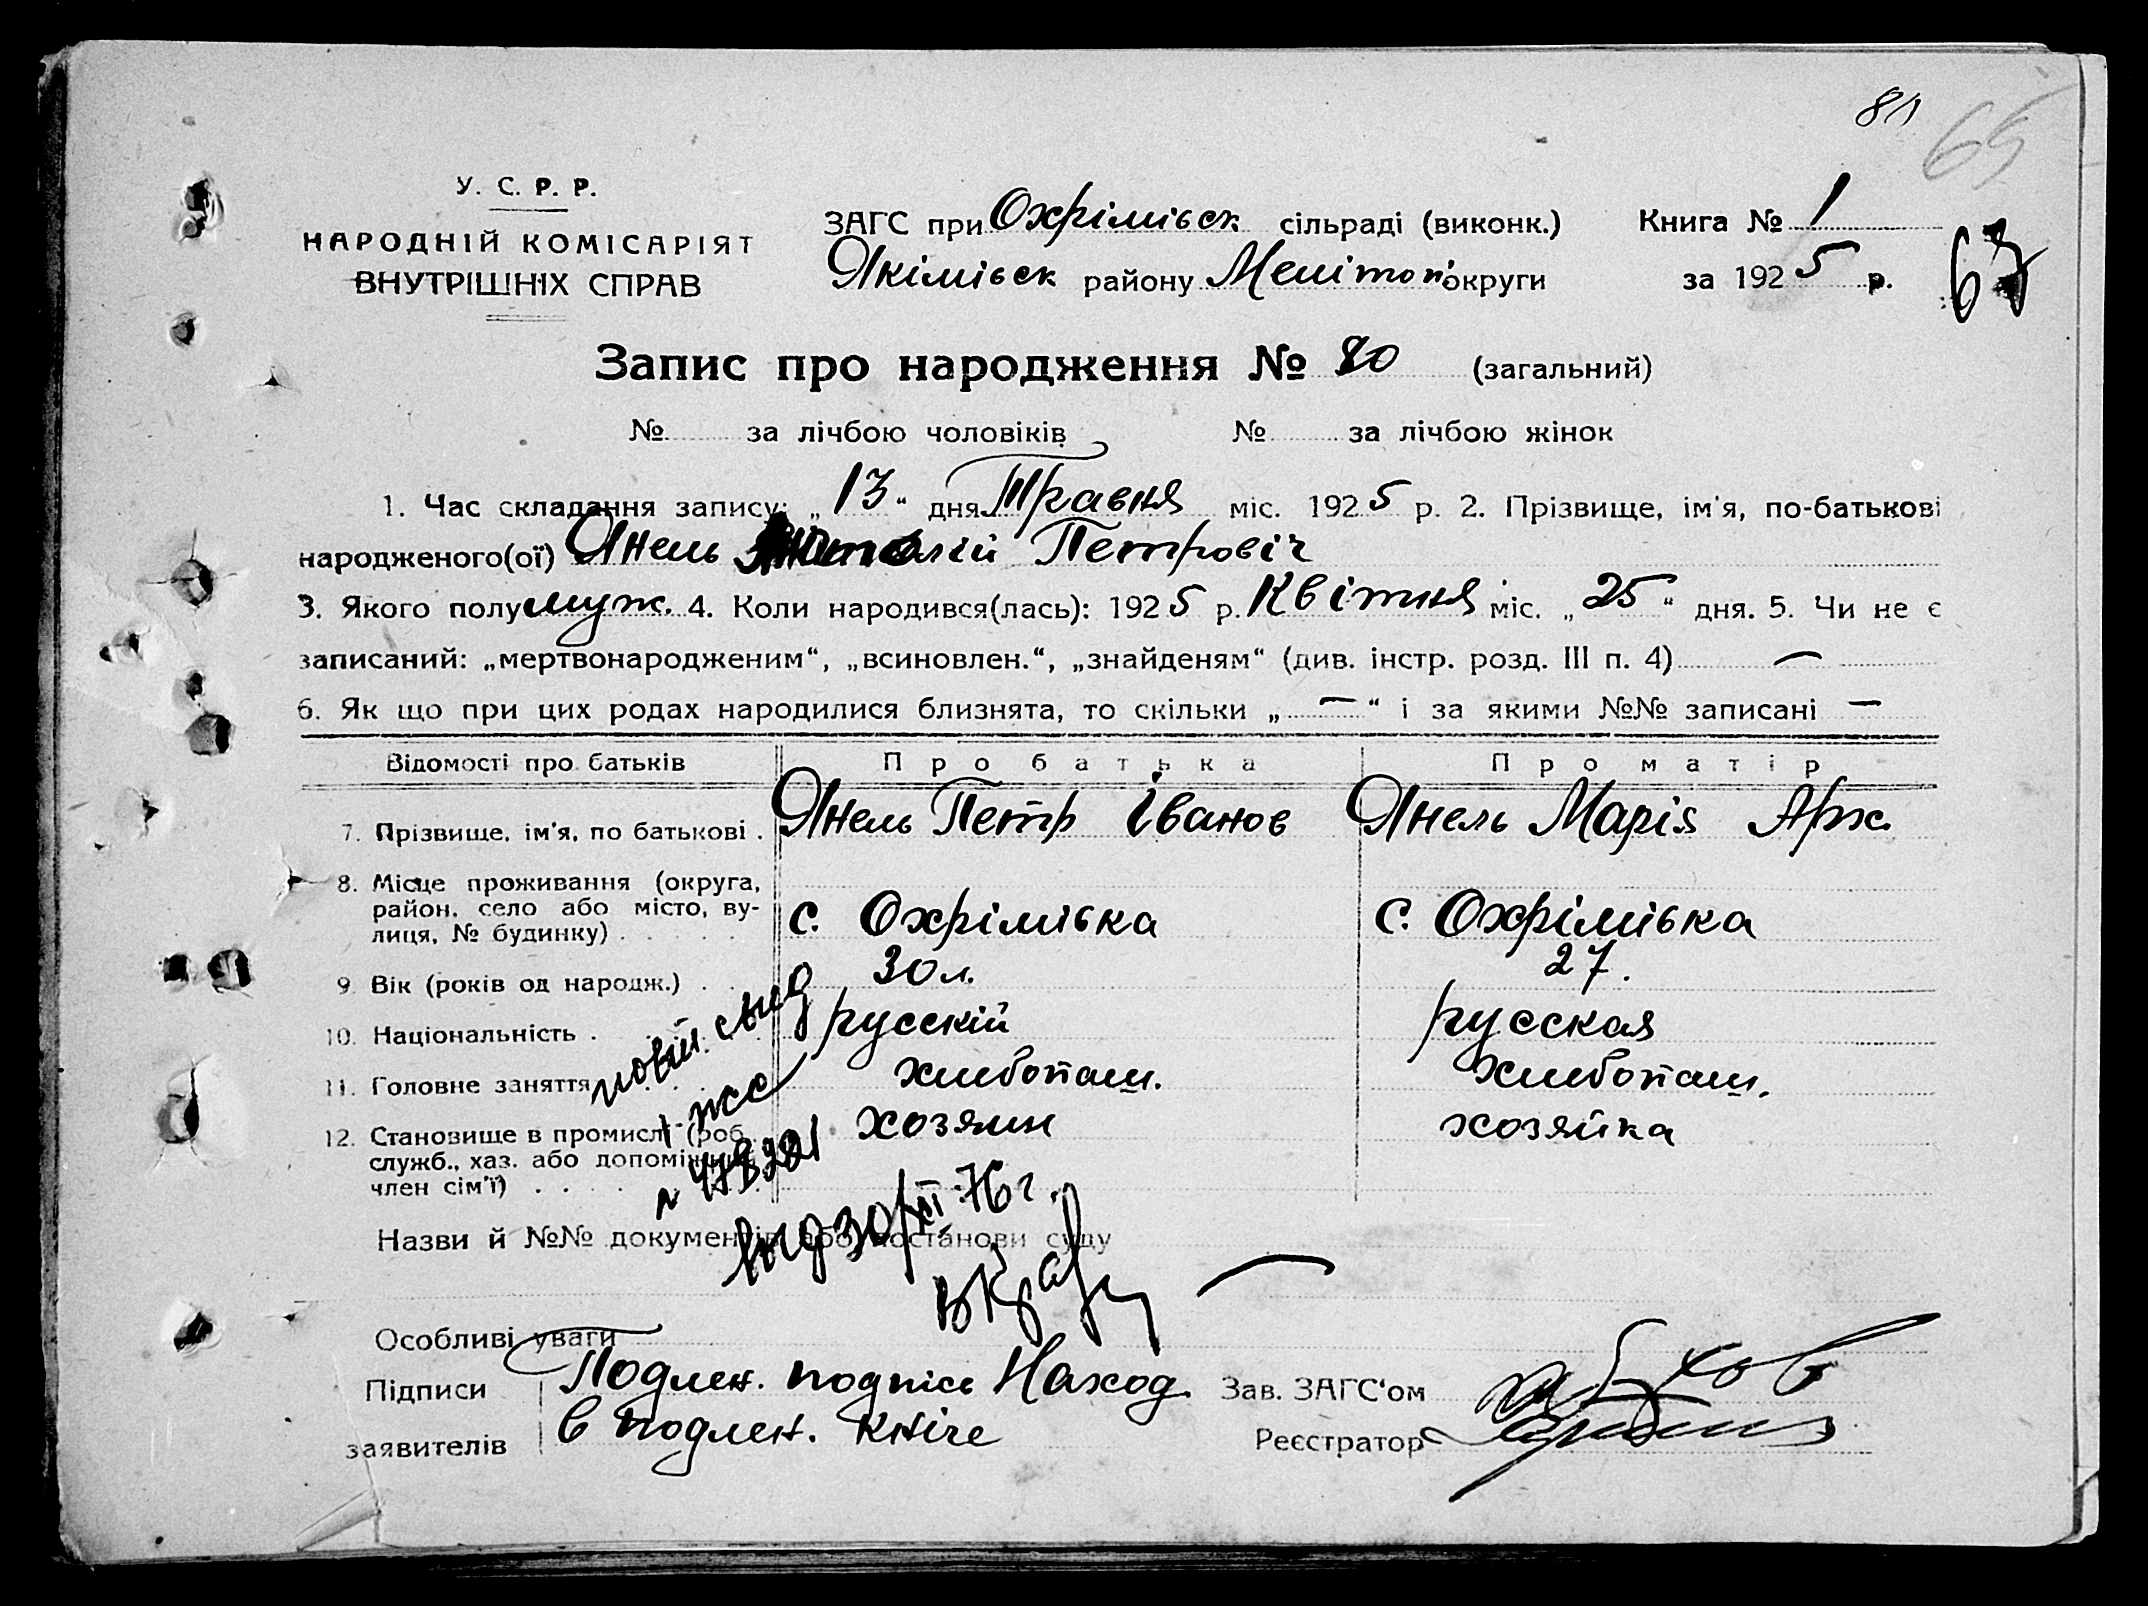 81
65
У. С. Р. Р.
НАРОДНІЙ КОМІСАРІЯТ
ВНУТРІШНІХ СПРАВ
ЗАГС при Охрімівск сільраді (виконк.)
Якімівск району Мелітоп округи
Книга № 1
за 1925 р.
67
Запис про народження № 80 (загальний)
№ за лічбою чоловіків № за лічбою жінок
1. Час складання запису: „13“ дня Травня міс. 1925 р. 2. Прізвище, ім'я, по-батькові
народженого(ої) Янель Анатолій Петровіч
3. Якого полу муж. 4. Коли народився(лась): 1925 р. Квітня міс. „25“ дня. 5. Чи не є
записаний: „мертвонародженим“, „всиновлен.“, „знайденям“ (див. інстр. розд. III п. 4) —
6. Як що при цих родах народилися близнята, то скільки „—“ і за якими №№ записані —
Відомості про батьків Про батька Про матір
7. Прізвище, ім'я, по батькові . Янель Петр Іванов Янель Марія Арх.
8. Місце проживання (округа,
район, село або місто, ву-
лиця, № будинку) . . . . . с. Охрімівка с. Охрімівка
9. Вік (років од народж.) . . 30 л. 27.
10. Національність . русскій русская
11. Головне заняття хлібопаш. хлібопаш.
12. Становище в промислі (роб.
служб., хаз. або допоміжний
член сім'ї) . . . . хозяин хозяйка
478201
выд 30/XI-76 г.
Назви й №№ документів або постанови суду
—
Особливі уваги
Підписи
заявителів
Подлен. подпісь Наход.
в подлен. кніге
Зав. ЗАГС'ом
Реєстратор